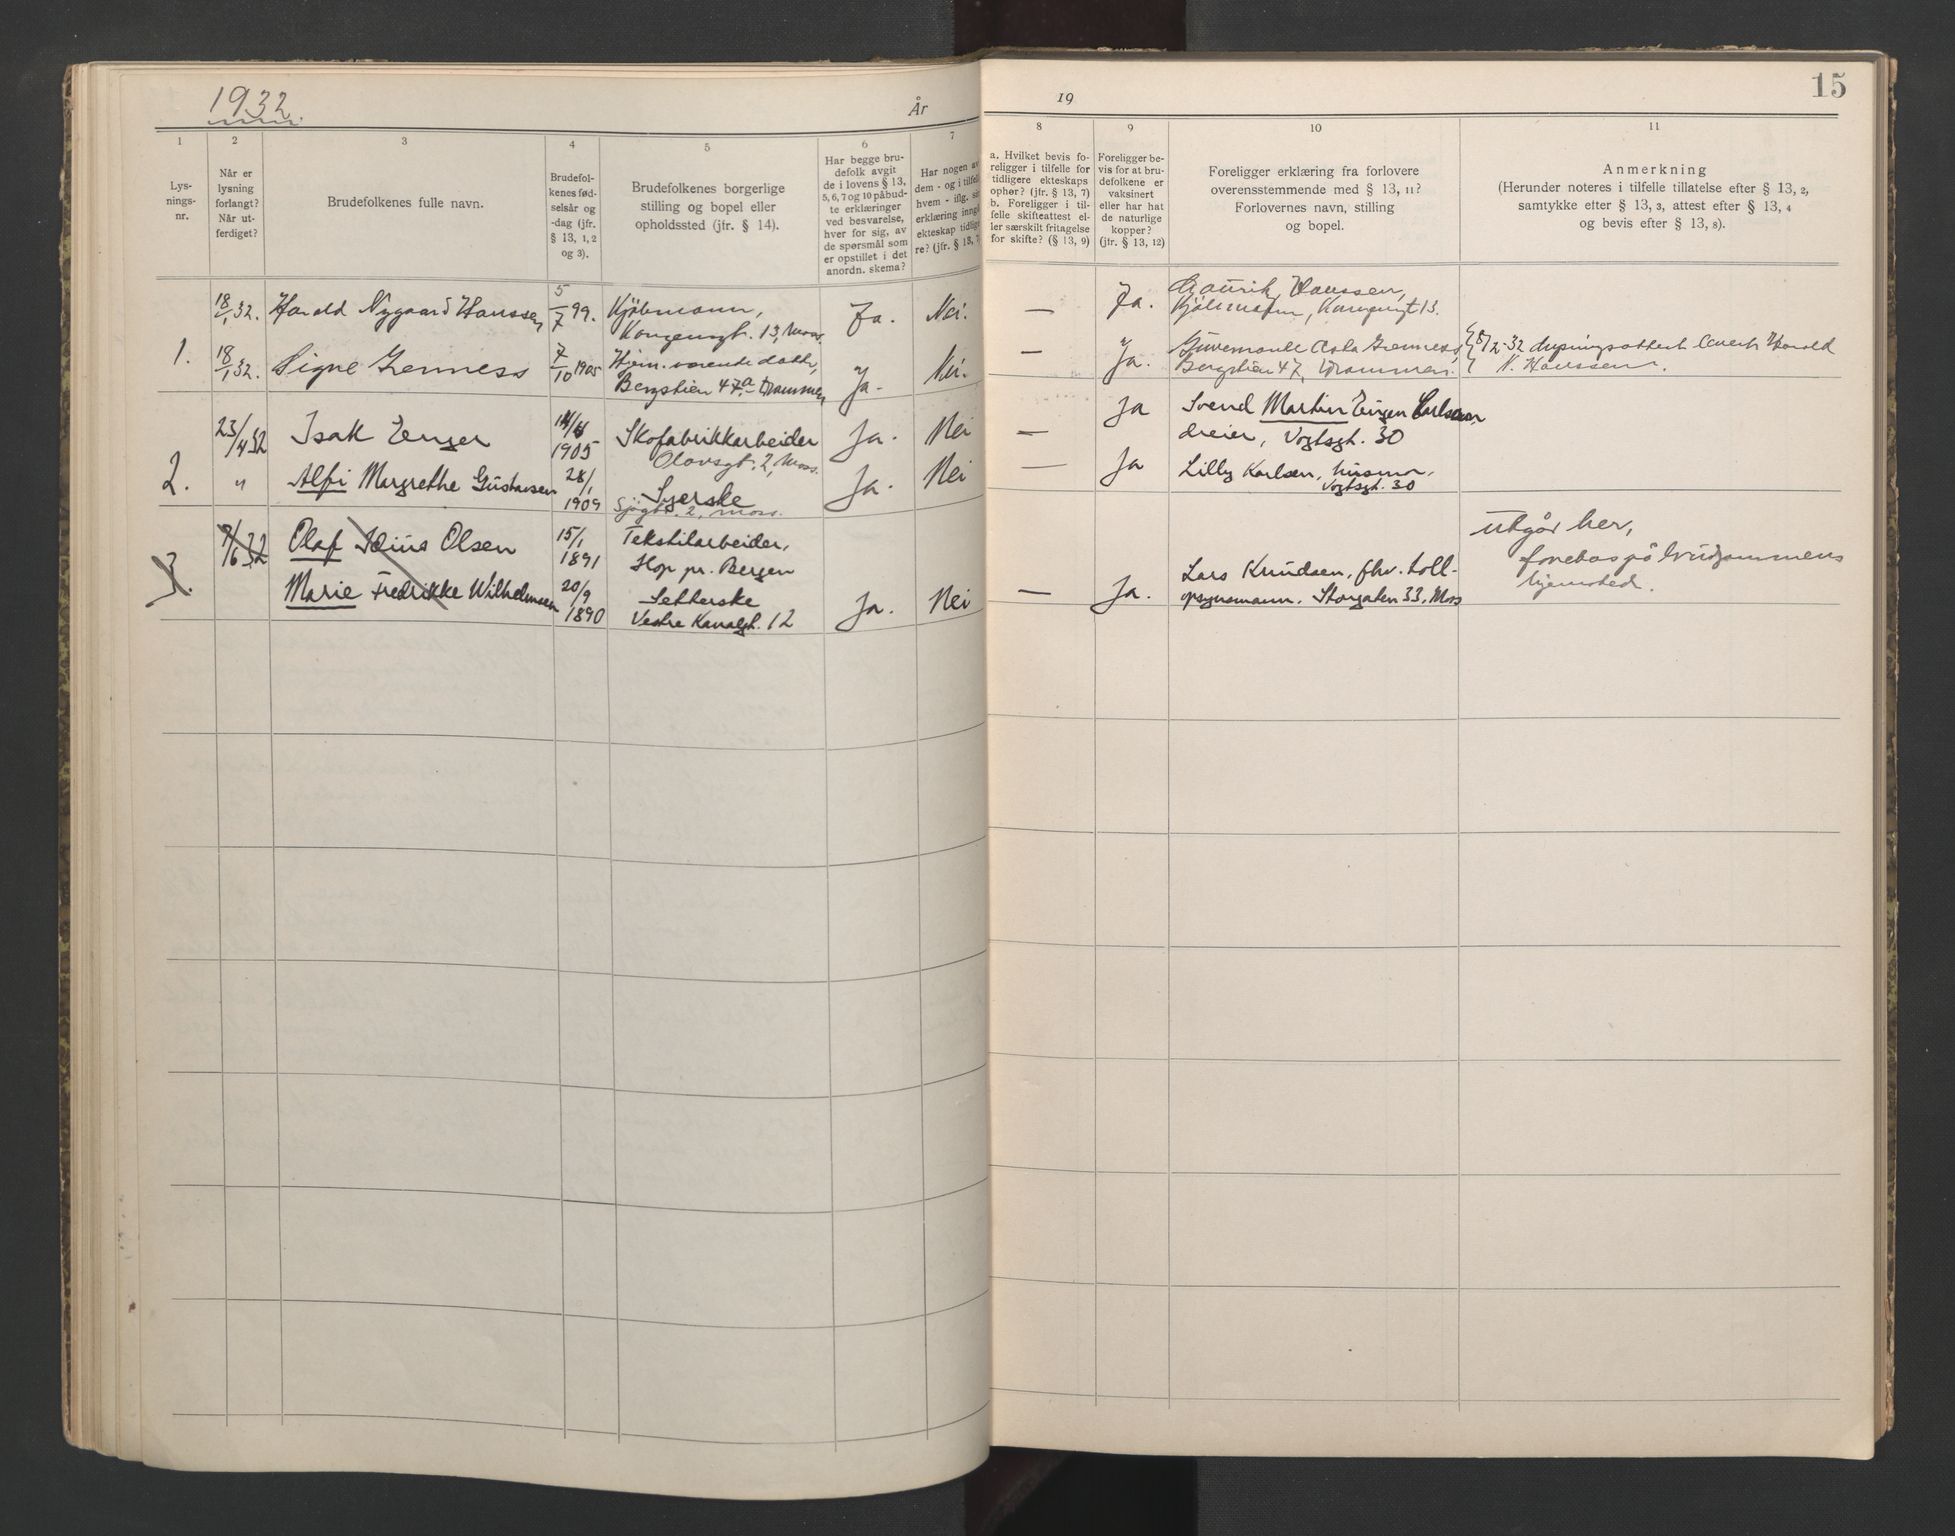 1932
År
19
15
1
2
3
4
5
6
7
8
9
10
11
Lys-
nings-
nr.
Når er
lysning
forlangt?
Når ut-
ferdiget?
Brudefolkenes fulle navn.
Brudefol-
kenes fød-
selsår og
-dag (jfr.
§ 13, 1, 2
og 3).
Brudefolkenes borgerlige
stilling og bopel eller
opholdssted (jfr. § 14).
Har begge bru-
defolk avgit
de i lovens § 13,
5, 6, 7 og 10 påbud-
te erklæringer
ved besvarelse,
hver for sig, av
de spørsmål som
er opstillet i det
anordn. skema?
Har nogen av
dem - og i tilfelle
hvem - iflg.
erklæring inngå
ekteskap tidlige
re? (jfr. § 13, 7
a. Hvilket bevis fo-
religger i tilfelle for
tidligere ekteskaps
ophør? (jfr. § 13, 7)
b. Foreligger i til-
felle skifteattest el-
ler særskilt fritagelse
for skifte? (§ 13, 9)
Foreligger be-
vis for at bru-
defolkene er
vaksinert
eller har hat
de naturlige
kopper?
(jfr. § 13, 12)
Foreligger erklæring fra forlovere
overensstemmende med § 13, 11?
Forlovernes navn, stilling
og bopel.
Anmerkning
(Herunder noteres i tilfelle tillatelse efter § 13, 2,
samtykke efter § 13, 3, attest efter § 13, 4
og bevis efter § 13, 8).
1.
18/1 32. Harald Nygaard Hanssen 5/7 99. Kjøbmann,
Kongensgt. 13, Moss. Ja. Nei. — Ja. Hanssen,
Kjøbmann, Kongensgt 13.
18/1 32. Signe Genness 7/10 1905 Hjem.værende datter,
Bergstien 47a Drammen Ja. Nei. — Ja. Genness,
Bergstien 47, Drammen.
8/2-32 lysningsattest Harald
N. Hanssen.
2.
23/4 32 Isak Enger 1905 Skofabrikkarbeider
Olavsgt. 2, Moss. Ja. Nei — Ja Svend Martin Carlsen
dreier, Vogtsgt. 30
" Alfi Margrethe Gustavsen 28/1 1909 Syerske
Sjøgt. 2, Moss. Ja. Nei — Ja Lilly Karlsen, husmor,
Vogtsgt. 30
3.
7/6 32 Olaf Olsen 15/1 1891 Tekstilarbeider,
Hop pr. Bergen
Marie Fredrikke Wilhelmsen 20/9 1890 Setterske
Vestre Kanalgt. 12 Ja. Nei — Ja. Lars Knudsen, fhv. toll-
opsynsmann. Storgaten 33, Moss
Utgår her,
på brudgommens
hjemsted.